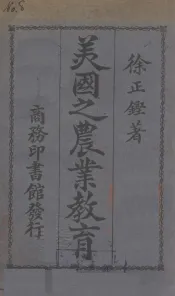 No. 8
徐正鏗著
美國之農業教育
商務印書館發行